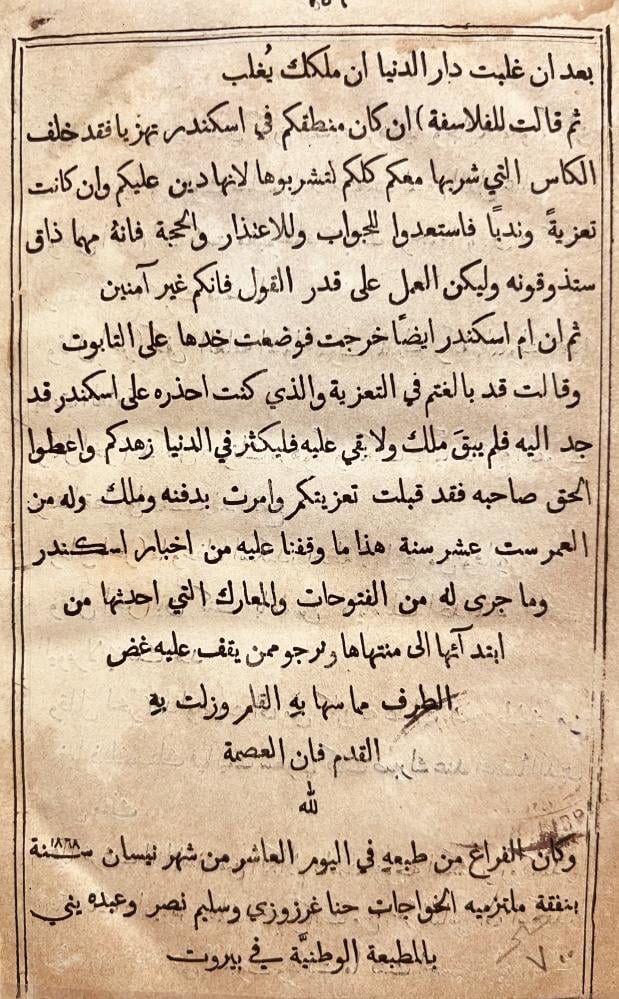 بعد ان غلبت دار الدنيا ان ملكك يُغلب
ثم قالت للفلاسفة) ان كان منطقكم في اسكندر تهزيا فقد خلف
الكاس التي شربها معكم كلكم لتشربوها لانها دين عليكم وان كانت
تعزيةً وندبًا فاستعدوا للجواب وللاعتذار والحجة فانهُ مهما ذاق
ستذوقونه وليكن العمل على قدر القول فانكم غير آمنين
ثم ان ام اسكندر ايضًا خرجت فوضعت خدها على التابوت
وقالت قد بالغتم في التعزية والذي كنت احذره على اسكندر قد
جد اليه فلم يبقَ ملك ولا بقي عليه فليكثر في الدنيا زهدكم واعطوا
الحق صاحبه فقد قبلت تعزيتكم وامرت بدفنه وملك وله من
العمر ست عشر سنة هذا ما وقفنا عليه من اخبار اسكندر
وما جرى له من الفتوحات والمعارك التي احدثها من
ابتدآئها الى منتهاها ونرجو ممن يقف عليه غض
الطرف مما سها بهِ القلم وزلت بهِ
القدم فان العصمة
لله
وكان الفراغ من طبعهِ في اليوم العاشر من شهر نيسان سنة ١٨٦٨
بنفقة ملتزميه الخواجات حنا غرزوزي وسليم نصر وعبده يني
بالمطبعة الوطنيَّة في بيروت